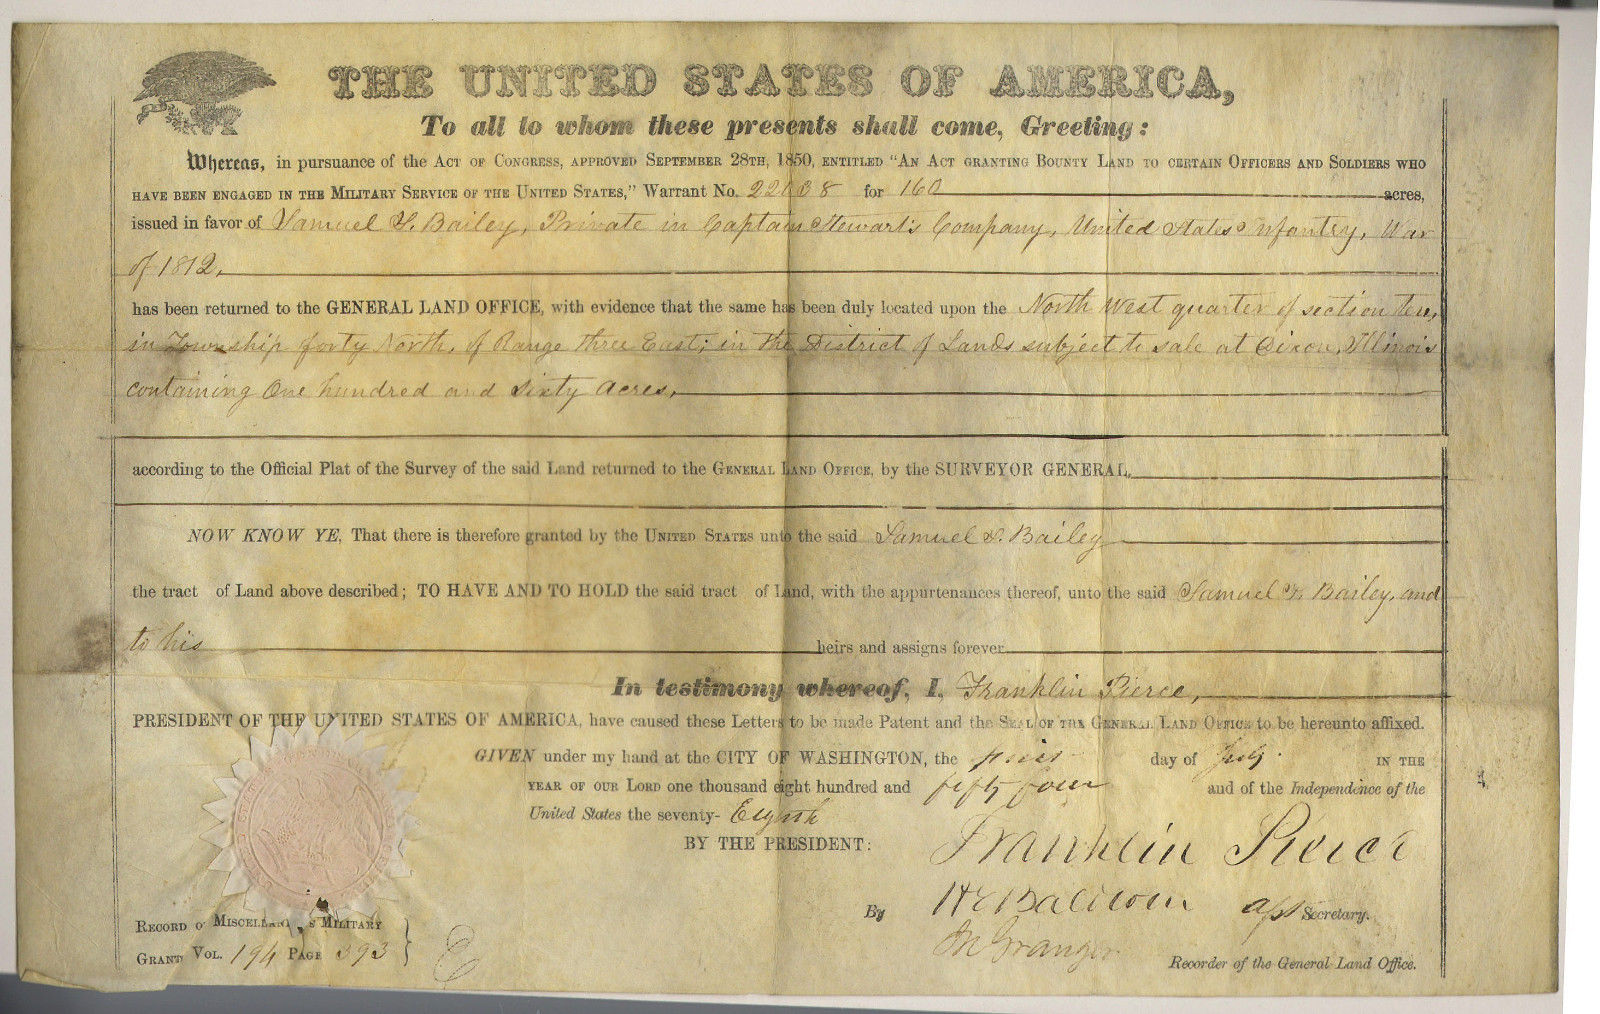 THE UNITED STATES OF AMERICA,
To all to whom these presents shall come, Greeting:
Whereas, in pursuance of the Act of Congress, approved September 28th, 1850, entitled "An Act granting Bounty Land to certain Officers and Soldiers who
have been engaged in the Military Service of the United States," Warrant No. 22038 for 160 acres,
issued in favor of Samuel F. Bailey, Private in Captain Stewart's Company, United States Infantry, War
of 1812,
has been returned to the GENERAL LAND OFFICE, with evidence that the same has been duly located upon the North West quarter of section ten,
in Township forty North, of Range three East; in the District of Lands subject to sale at Dixon, Illinois
containing One hundred and Sixty Acres,
according to the Official Plat of the Survey of the said Land returned to the General Land Office, by the SURVEYOR GENERAL,
NOW KNOW YE, That there is therefore granted by the United States unto the said Samuel F. Bailey
the tract of Land above described; TO HAVE AND TO HOLD the said tract of Land, with the appurtenances thereof, unto the said Samuel F. Bailey, and
to his heirs and assigns forever
In testimony whereof, I, Franklin Pierce,
PRESIDENT OF THE UNITED STATES OF AMERICA, have caused these Letters to be made Patent and the Seal of the General Land Office to be hereunto affixed.
GIVEN under my hand at the CITY OF WASHINGTON, the first day of July in the
year of our Lord one thousand eight hundred and fifty four and of the Independence of the
United States the seventy-Eighth
BY THE PRESIDENT: Franklin Pierce
By H E Baldwin asst Secretary.
Record of Miscellaneous Military
Grants Vol. 194 Page 393
Granger
Recorder of the General Land Office.